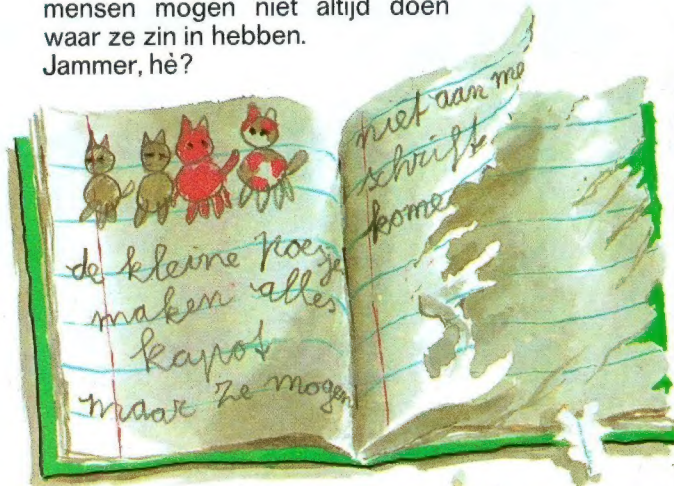 mensen mogen niet altijd doen
waar ze zin in hebben.
Jammer, hè?
de kleine poesje
maken alles
kapot
maar ze mogen
niet aan me
schrift
kome